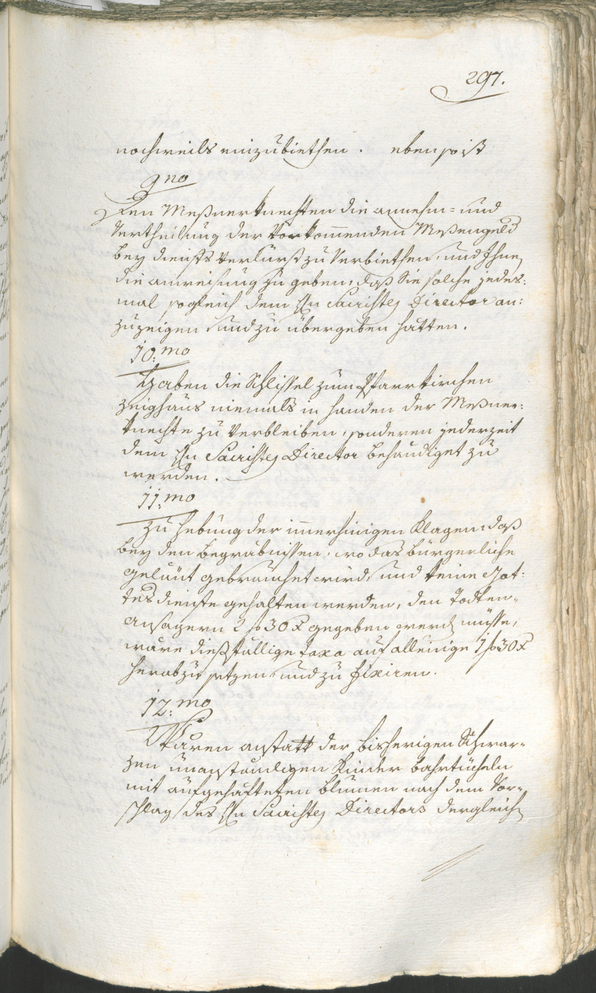 297.
nochweils einzubiethen. ebenso ist
9no
Den Meßnerknechten die annehm- und
Vertheilung der Vorkommenden Meßengeld
bey dienst Verlurst zu Verbiethen, und Ihnen
die anweisung zu geben, daß Sie solche jedes-
mal sogleich dem Hn Sacristey Director an-
zuzeigen und zu übergeben hätten.
10:mo
Haben die Schlissel zum Pfarrkirchen
zeighaus niemals in handen der Meßner-
knechte zu Verbleiben, sonderen jederzeit
dem Hn Sacristey Director behändiget zu
werden.
11:mo
Zu hebung der immerhinigen Klagen daß
bey den begräbnissen, wo das bürgerliche
geläut gebrauchet wird und keine Got-
tesdienste gehalten werden, den Todten-
ansagern 2 f 30 x gegeben werden müsse,
wäre diesfällige Taxa auf alleinige 1 f 30 x
herabzusetzen und zu fixiren.
12:mo
Wären anstatt der bisherigen Schwar-
zen unanständigen Kinder bahrtücheln
mit aufgehefteten blumen nach dem Vor-
schlag des Hn Sacristey Directors dergleichen